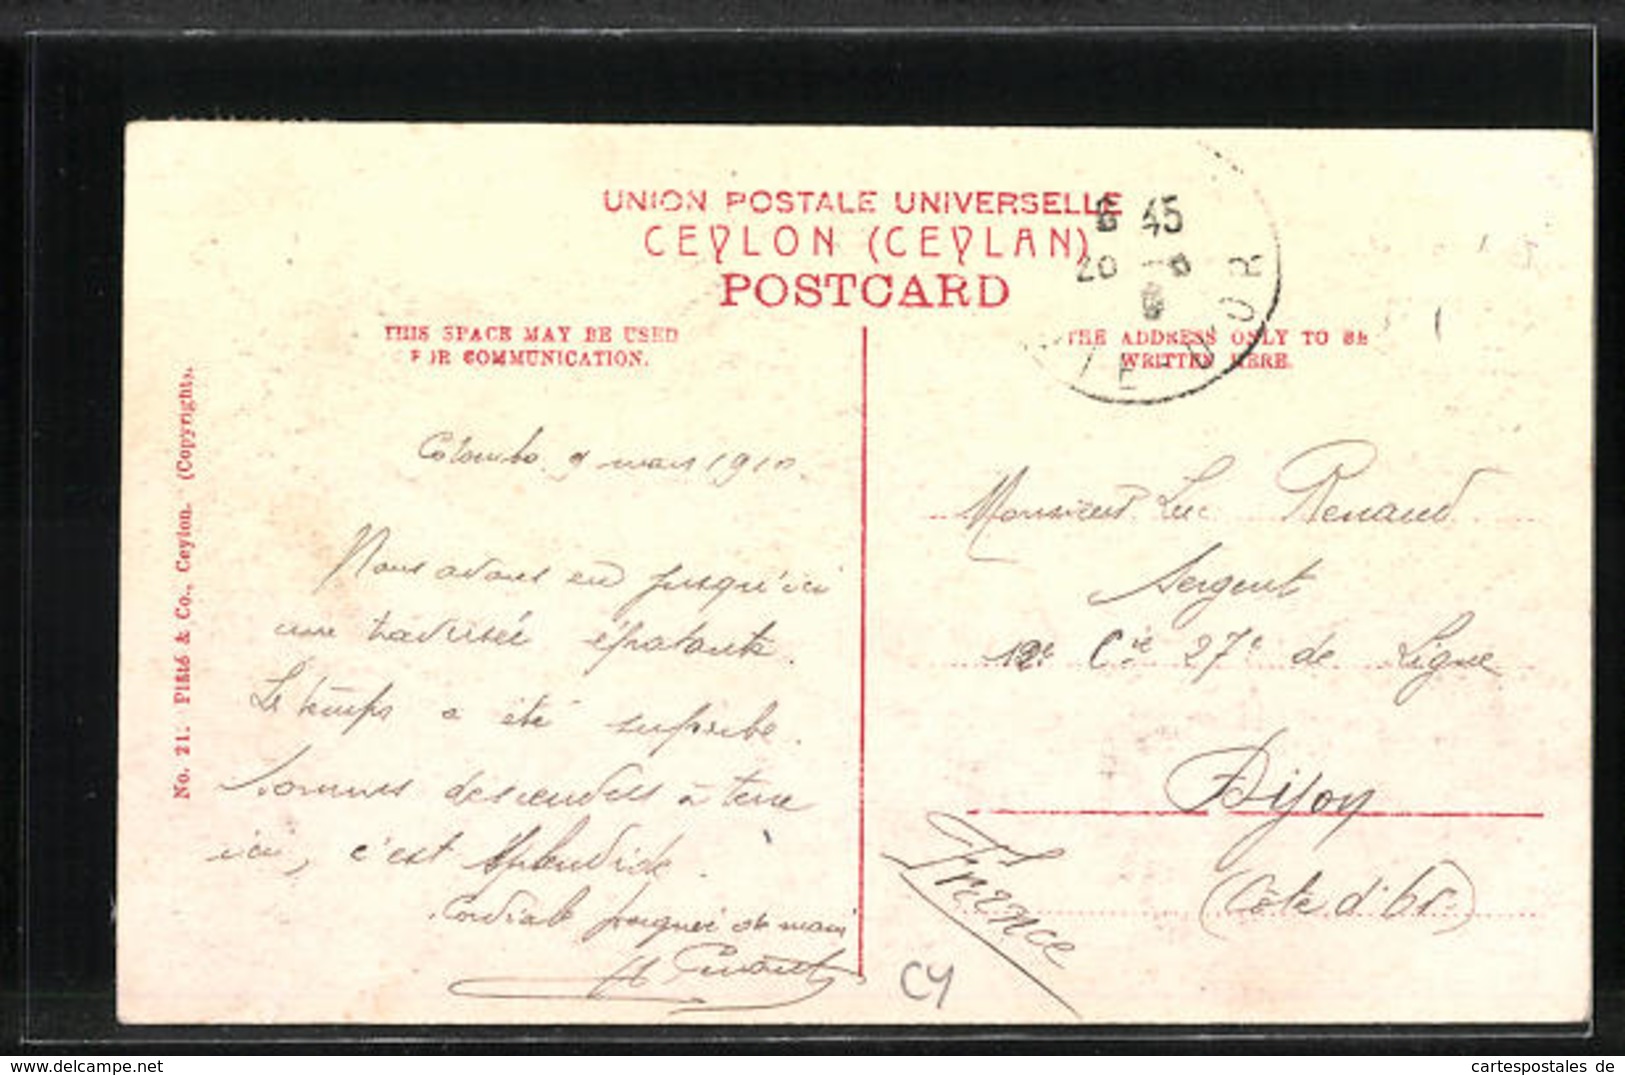 UNION POSTALE UNIVERSELLE
CEYLON (CEYLAN)
POSTCARD
6 45
20
CÔTE-D'OR
THIS SPACE MAY BE USED
FOR COMMUNICATION.
THE ADDRESS ONLY TO BE
WRITTEN HERE.
No. 21. Plâté & Co., Ceylon. (Copyright).
Colombo 9 mars 1910.
Nous avons eu jusqu'ici
une traversée épatante.
Le temps a été superbe.
Sommes descendus à terre
ici, c'est splendide.
Cordiale poignée de main
Monsieur Luc Renaud
Sergent
12e Cie 27e de Ligne
Dijon
(Côte d'Or)
France
CY
cartespostales de